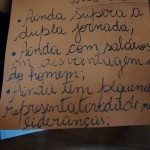 • Ainda supera a
dupla jornada,
• Ainda com salários
em desvantagem a
do homem;
• Ainda tem pequena
representatividade na
lideranças;